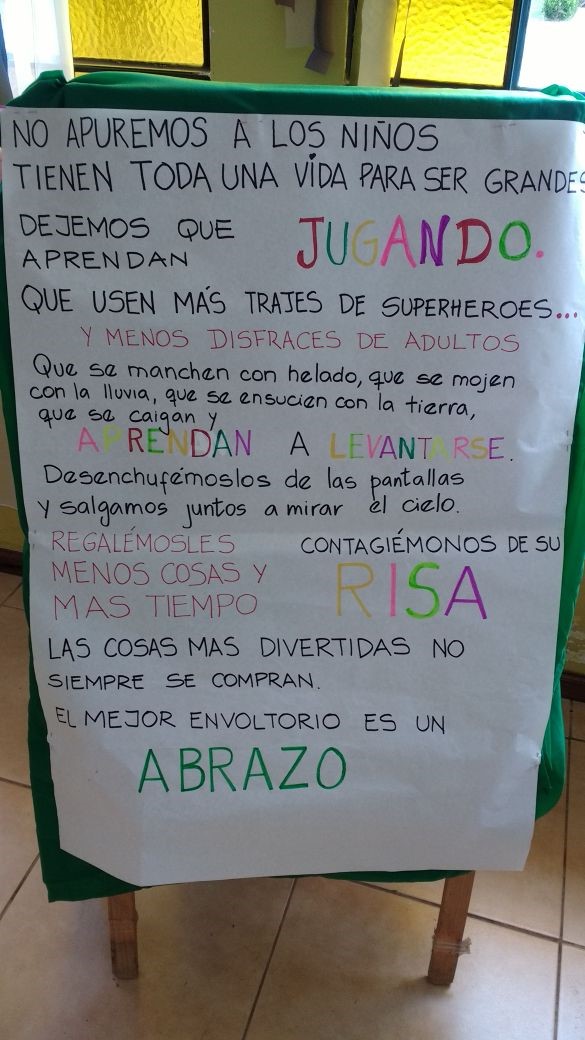 NO APUREMOS A LOS NIÑOS
TIENEN TODA UNA VIDA PARA SER GRANDES
DEJEMOS QUE
APRENDAN JUGANDO.
QUE USEN MÁS TRAJES DE SUPERHEROES...
Y MENOS DISFRACES DE ADULTOS
Que se manchen con helado, que se mojen
con la lluvia, que se ensucien con la tierra,
que se caigan y
APRENDAN A LEVANTARSE.
Desenchufémoslos de las pantallas
y salgamos juntos a mirar el cielo.
REGALÉMOSLES
MENOS COSAS Y
MAS TIEMPO
CONTAGIÉMONOS DE SU
RISA
LAS COSAS MAS DIVERTIDAS NO
SIEMPRE SE COMPRAN.
EL MEJOR ENVOLTORIO ES UN
ABRAZO